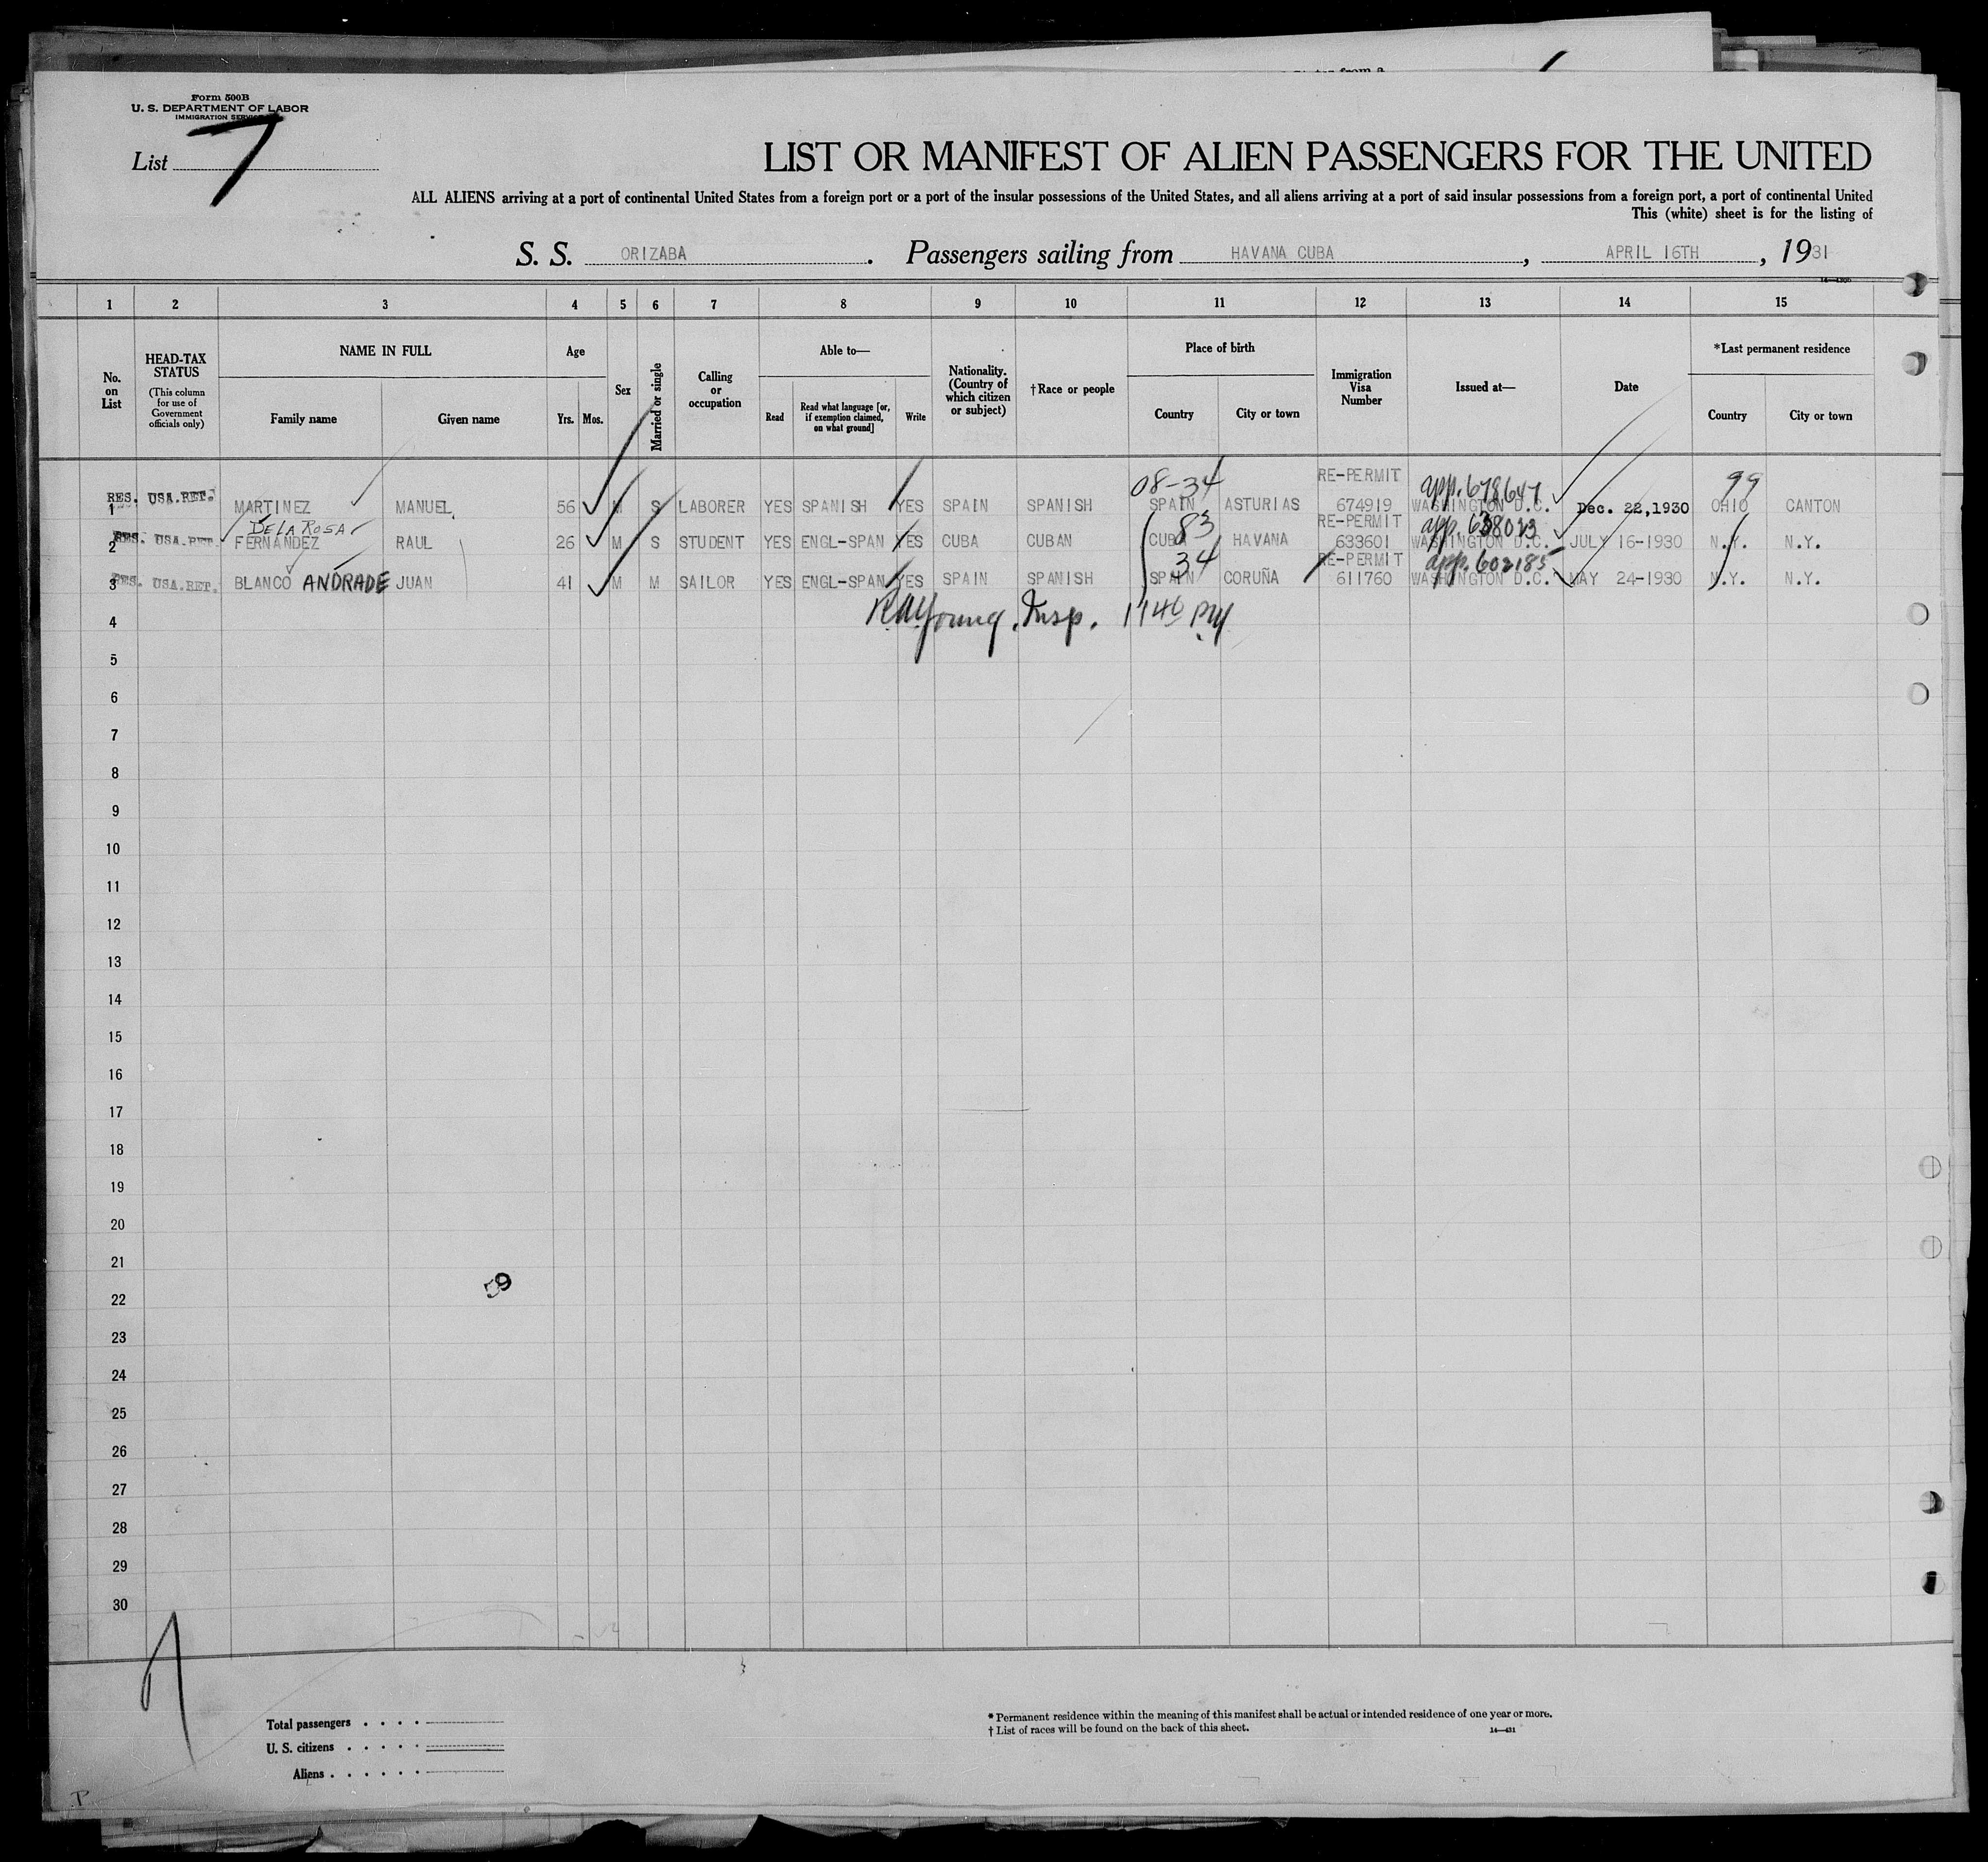 Form 500B
U. S. DEPARTMENT OF LABOR
IMMIGRATION SERVICE
List 7
LIST OR MANIFEST OF ALIEN PASSENGERS FOR THE UNITED
ALL ALIENS arriving at a port of continental United States from a foreign port or a port of the insular possessions of the United States, and all aliens arriving at a port of said insular possessions from a foreign port, a port of continental United
This (white) sheet is for the listing of
S. S. ORIZABA. Passengers sailing from HAVANA CUBA, APRIL 16TH, 1931
1 2 3 4 5 6 7 8 9 10 11 12 13 14 15
No. on List
HEAD-TAX STATUS
(This column for use of Government officials only)
NAME IN FULL
Family name Given name
Age
Yrs. Mos.
Sex
Married or single
Calling or occupation
Able to—
Read Read what language [or, if exemption claimed, on what ground] Write
Nationality. (Country of which citizen or subject)
†Race or people
Place of birth
Country City or town
Immigration Visa Number
Issued at—
Date
*Last permanent residence
Country City or town
08-34 RE-PERMIT app. 678647 99
1 RES. USA.RET. MARTINEZ MANUEL 56 M S LABORER YES SPANISH YES SPAIN SPANISH SPAIN ASTURIAS 674919 WASHINGTON D.C. Dec. 22,1930 OHIO CANTON
DE LA ROSA 83 RE-PERMIT
2 RES. USA.RET. FERNANDEZ RAUL 26 M S STUDENT YES ENGL-SPAN YES CUBA CUBAN CUBA HAVANA 633601 WASHINGTON D.C. JULY 16-1930 N.Y. N.Y.
34 RE-PERMIT app. 602185
3 RES. USA.RET. BLANCO ANDRADE JUAN 41 M M SAILOR YES ENGL-SPAN YES SPAIN SPANISH SPAIN CORUÑA 611760 WASHINGTON D.C. MAY 24-1930 N.Y. N.Y.
4 Young. Insp. 1140 PM
5
6
7
8
9
10
11
12
13
14
15
16
17
18
19
20
21
59
22
23
24
25
26
27
28
29
30
Total passengers
U. S. citizens
Aliens
* Permanent residence within the meaning of this manifest shall be actual or intended residence of one year or more.
† List of races will be found on the back of this sheet. 14—431